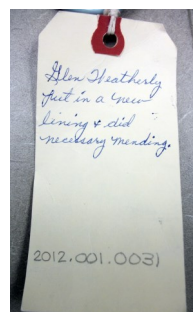 Glen Weatherly
put in a new
lining & did
necessary mending.
2012.001.0031